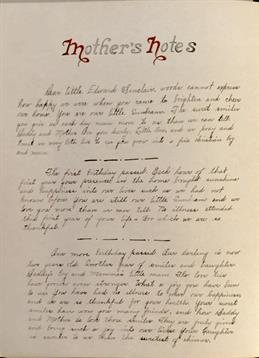 Mother's Notes
Dear little Edward Sinclair, words cannot express
how happy we were when you came to brighten and cheer
our home. You are our little Sunbeam. The sweet smiles
you give us each day mean more to us than we can tell.
Daddy and Mother love you dearly, Little One, and we pray and
trust we may both live to see you grow into a fine
and man.
The first birthday passed. Each hour of that
first year your presence in the home brought sunshine
and happiness into our lives such as we had not
known before. You are still our little Sunbeam and we
love you more than we can tell. No illness attended
this first year of your life. For which we are so
thankful.
One more birthday passed. Our darling is now
two years old. Another year of smiles and laughter.
Daddy's boy and Mamma's little man. Our love ties
have grown even stronger. What a joy you have been
to us. You have had no illness to mar our happiness
and we are so thankful for your health. Your sweet
smiles have won you many friends, and how Daddy
and Mother do love those smiles. They are truly given
and bring such a joy into our lives. Your laughter
is sweeter to us than the sweetest of chimes.